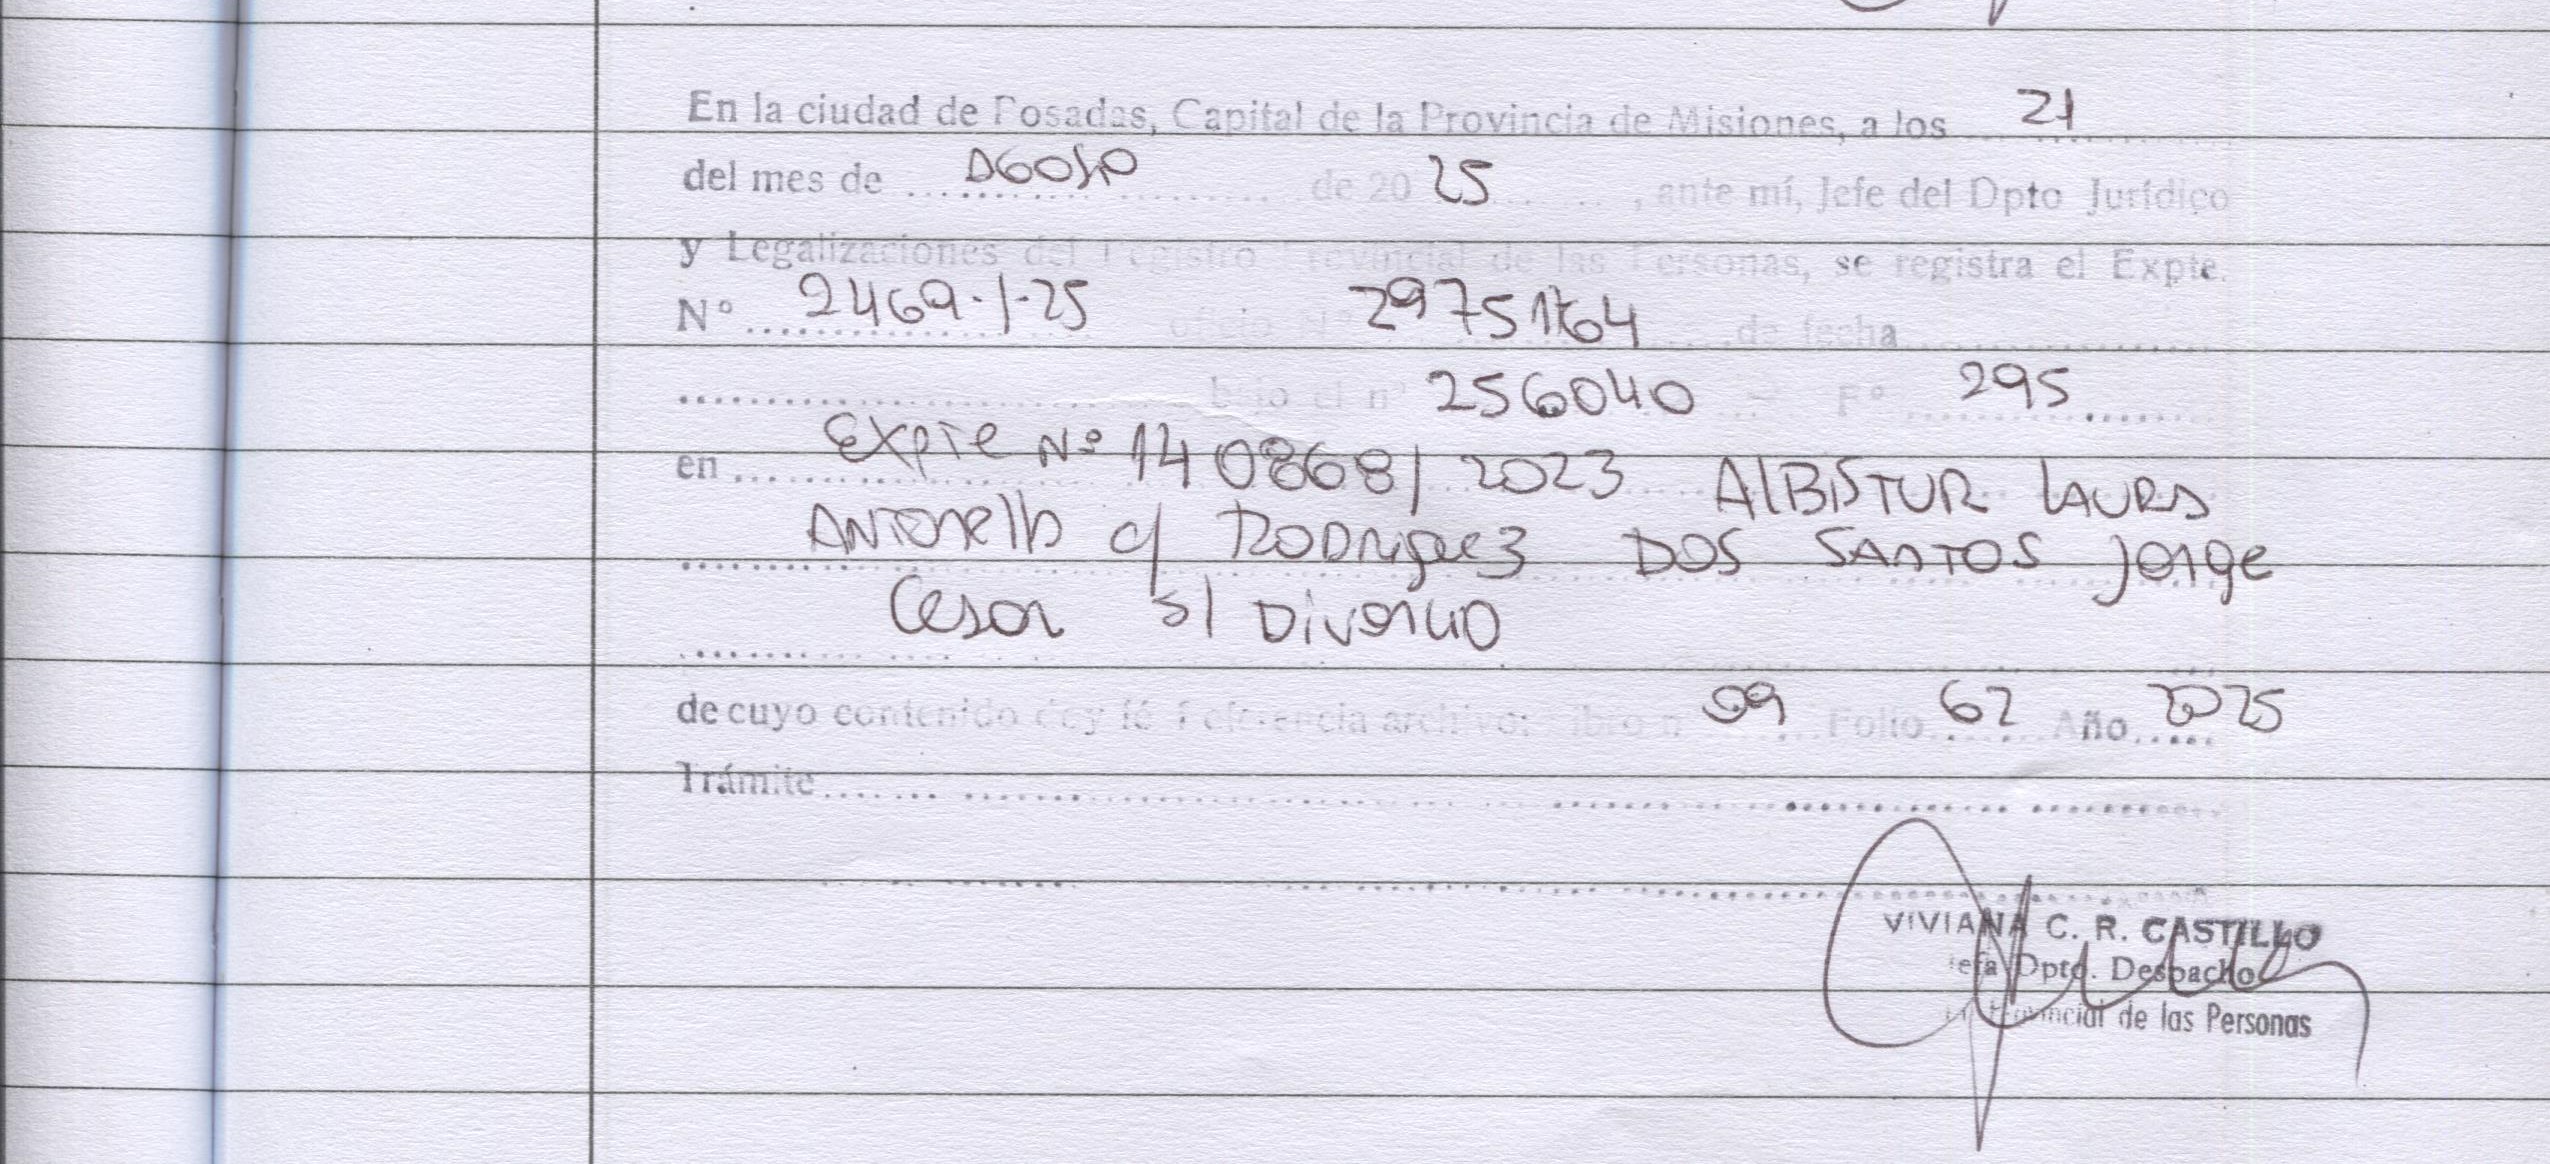 En la ciudad de Posadas, Capital de la Provincia de Misiones, a los 21
del mes de AGOSTO de 20 25, ante mí, Jefe del Dpto Jurídico
y Legalizaciones del Registro Provincial de las Personas, se registra el Expte.
N° 2469-1-25 oficio N° 29751764 de fecha
bajo el n° 256040 F° 295
en Expte Nº 140868/2023 AlBISTUR LAURA
ANTONEllA c/ RODRiguez DOS SANTOS Jorge
Cesar s/ Divorcio
de cuyo contenido doy fé Referencia archivo: Libro n° 09 Folio 62 Año 2025
Trámite
VIVIANA C. R. CASTILLO
Jefa Dpto. Despacho
Provincial de las Personas